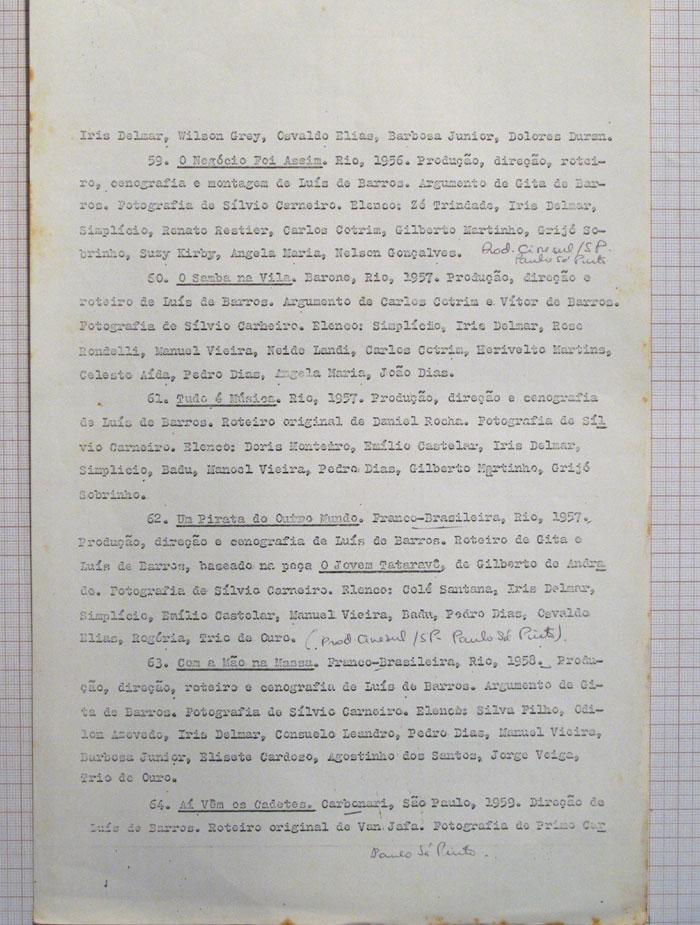 Iris Delmar, Wilson Grey, Osvaldo Elias, Barbosa Junior, Dolores Duran.
59. O Negócio Foi Assim. Rio, 1956. Produção, direção, rotei-
ro, cenografia e montagem de Luís de Barros. Argumento de Gita de Bar-
ros. Fotografia de Sílvio Carneiro. Elenco: Zé Trindade, Iris Delmar,
Simplício, Renato Restier, Carlos Cotrim, Gilberto Martinho, Grijó So-
brinho, Suzy Kirby, Angela Maria, Nelson Gonçalves. Prod. Cinesul/SP.
Paulo Sá Pinto
60. O Samba na Vila. Barone, Rio, 1957. Produção, direção e
roteiro de Luís de Barros. Argumento de Carlos Cotrim e Vítor de Barros.
Fotografia de Sílvio Carneiro. Elenco: Simplício, Iris Delmar, Rose
Rondelli, Manuel Vieira, Neide Landi, Carlos Cotrim, Herivelto Martins,
Celeste Aída, Pedro Dias, Angela Maria, João Dias.
61. Tudo é Música. Rio, 1957. Produção, direção e cenografia
de Luís de Barros. Roteiro original de Daniel Rocha. Fotografia de Síl
vio Carneiro. Elenco: Doris Monteiro, Emílio Castelar, Iris Delmar,
Simplicio, Badu, Manoel Vieira, Pedro Dias, Gilberto Martinho, Grijó
Sobrinho.
62. Um Pirata do Outro Mundo. Franco-Brasileira, Rio, 1957.
Produção, direção e cenografia de Luís de Barros. Roteiro de Gita e
Luís de Barros, baseado na peça O Jovem Tataravô, de Gilberto de Andra
de. Fotografia de Sílvio Carneiro. Elenco: Colé Santana, Iris Delmar,
Simplício, Emílio Castelar, Manuel Vieira, Badu, Pedro Dias, Osvaldo
Elias, Rogéria, Trio de Ouro. (Prod Cinesul/SP. Paulo Sá Pinto).
63. Com a Mão na Massa. Franco-Brasileira, Rio, 1958. Produ-
ção, direção, roteiro e cenografia de Luís de Barros. Argumento de Gi-
ta de Barros. Fotografia de Sílvio Carneiro. Elenco: Silva Filho, Odi-
lom Azevedo, Iris Delmar, Consuelo Leandro, Pedro Dias, Manuel Vieira,
Barbosa Junior, Elisete Cardoso, Agostinho dos Santos, Jorge Veiga,
Trio de Ouro.
64. Aí Vêm os Cadetes. Carbonari, São Paulo, 1959. Direção de
Luís de Barros. Roteiro original de Van Jafa. Fotografia de Primo Car
Paulo Sá Pinto.